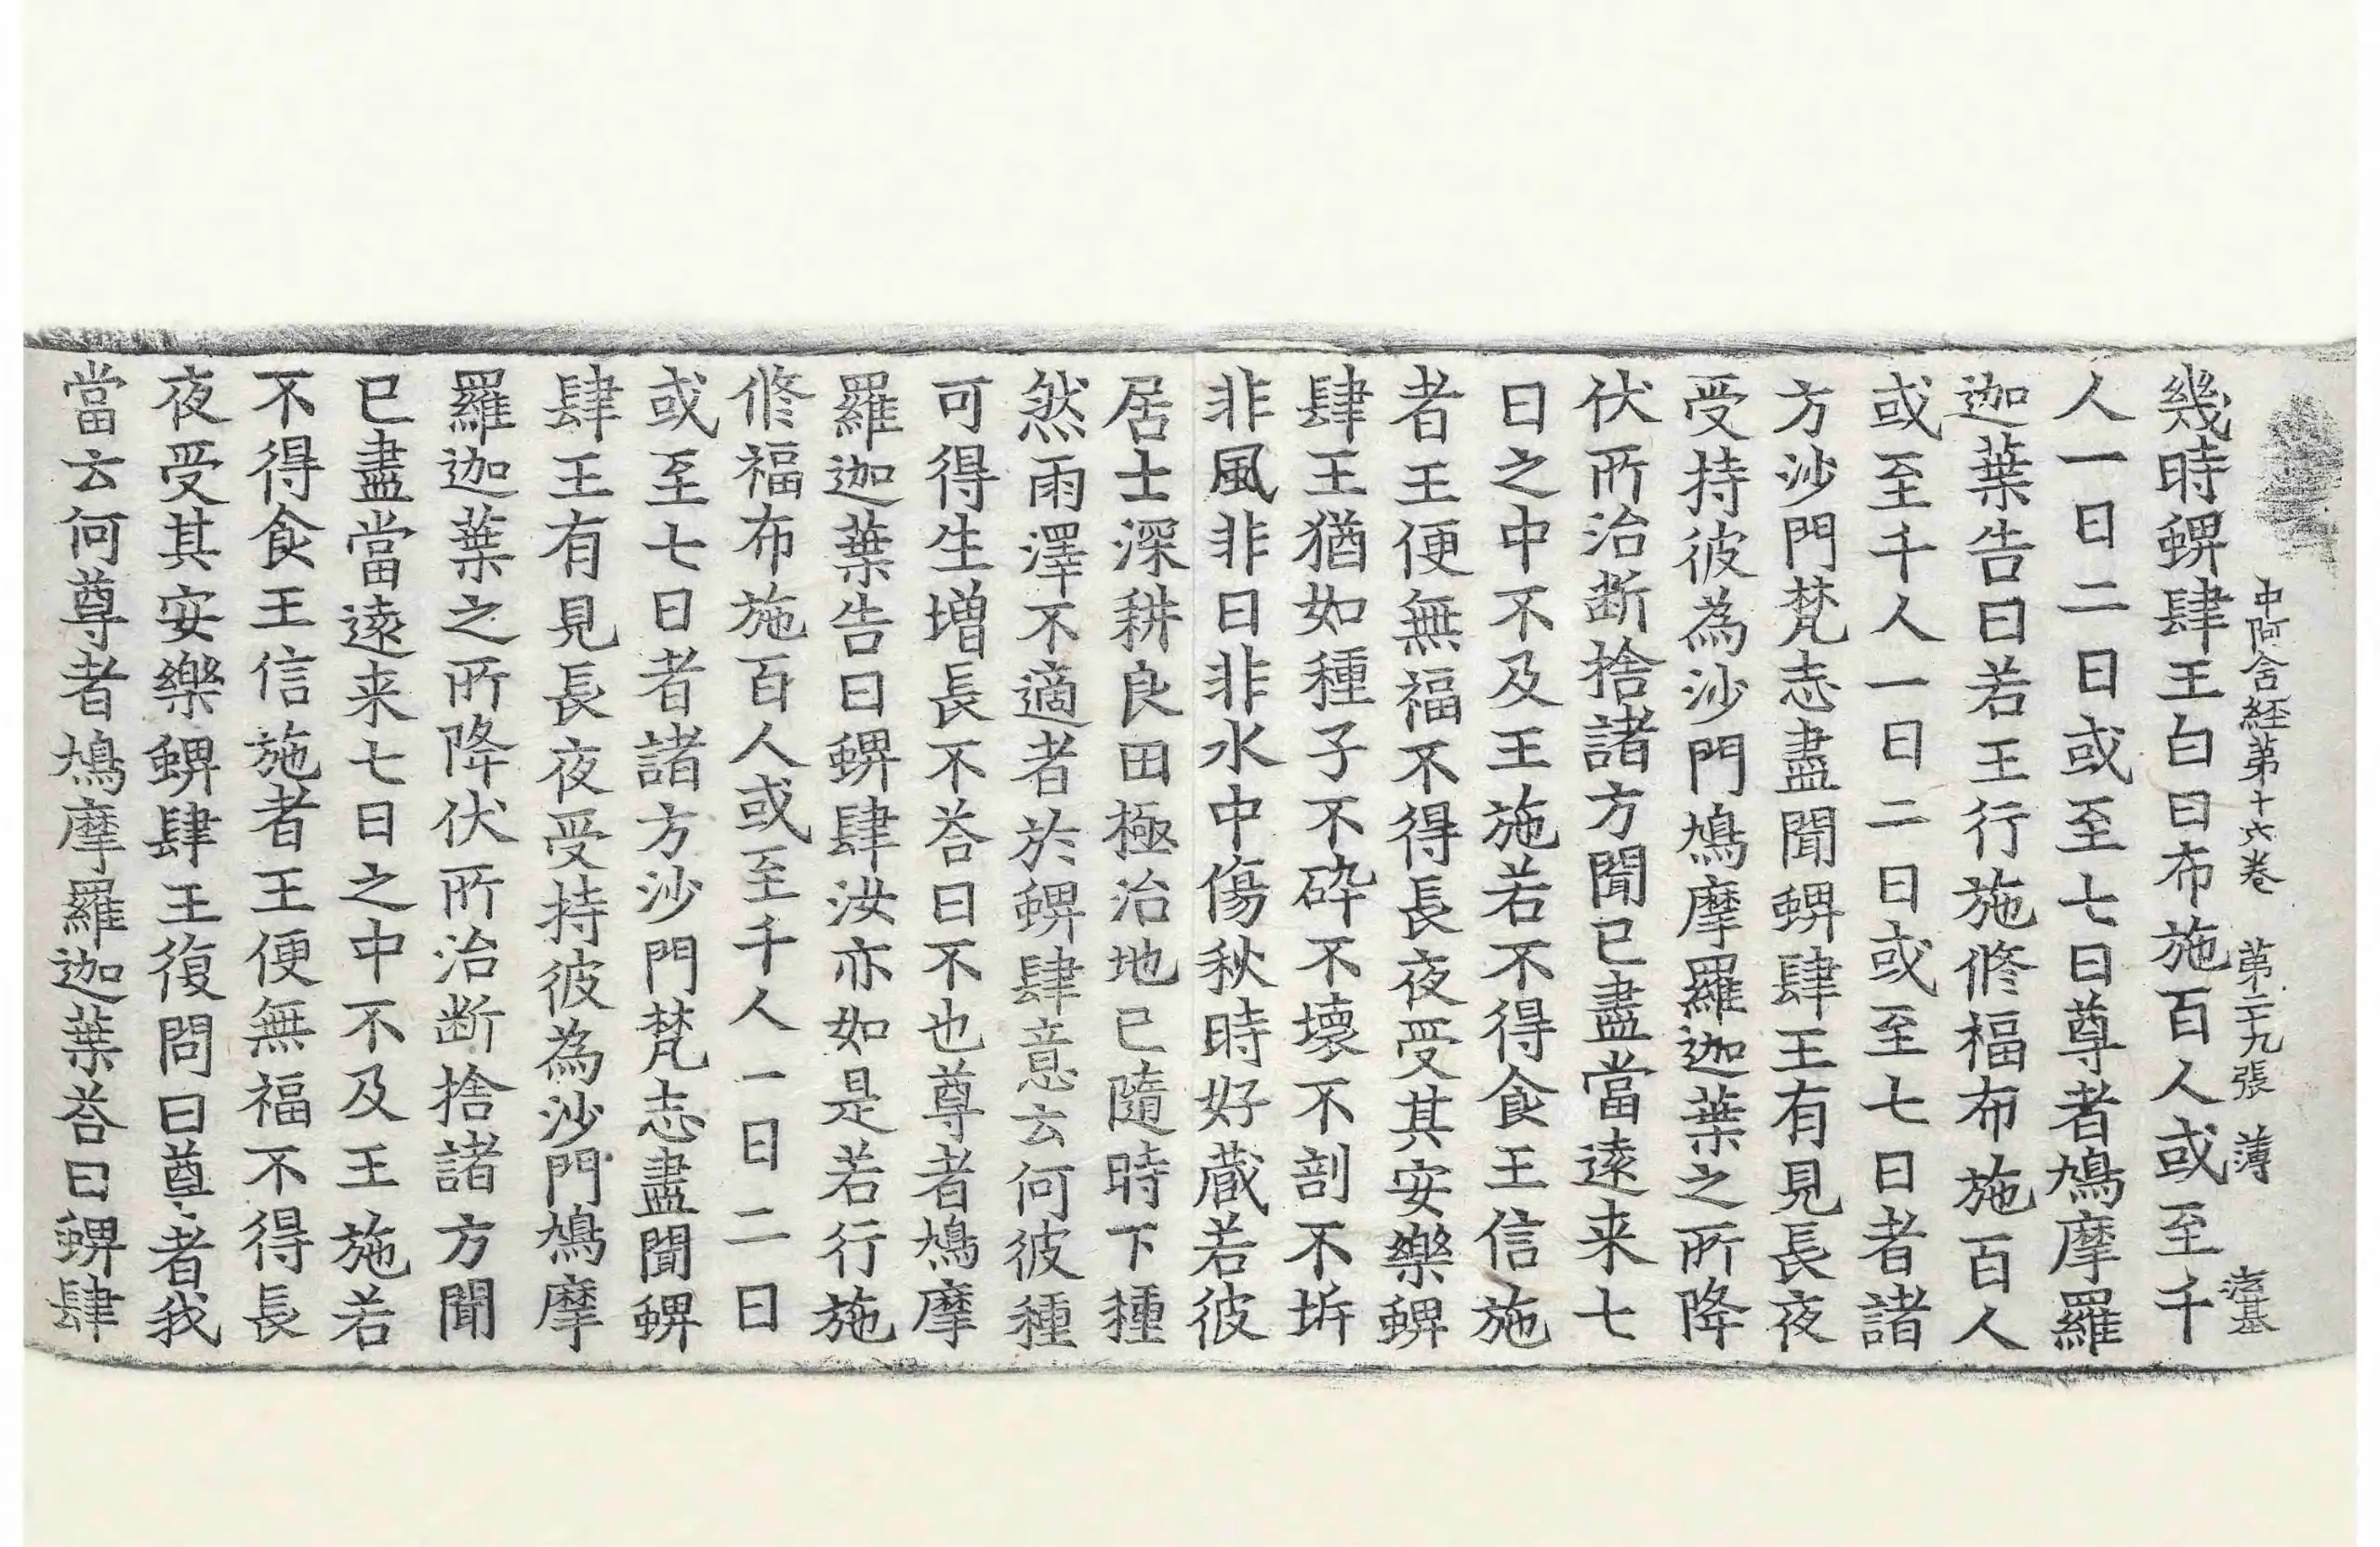 中阿含經第十六卷 第二十九張 薄
幾時蜱肆王白曰布施百人或至千
人一日二日或至七日尊者鳩摩羅
迦葉告曰若王行施修福布施百人
或至千人一日二日或至七日者諸
方沙門梵志盡聞蜱肆王有見長夜
受持彼為沙門鳩摩羅迦葉之所降
伏所治断捨諸方聞已盡當遠来七
日之中不及王施若不得食王信施
者王便無福不得長夜受其安樂蜱
肆王猶如種子不碎不壞不剖不坼
非風非日非水中傷秋時好蔵若彼
居士深耕良田極治地已隨時下種
然雨澤不適者於蜱肆意云何彼種
可得生增長不荅曰不也尊者鳩摩
羅迦葉告曰蜱肆汝亦如是若行施
修福布施百人或至千人一日二日
或至七日者諸方沙門梵志盡聞蜱
肆王有見長夜受持彼為沙門鳩摩
羅迦葉之所降伏所治断捨諸方聞
已盡當遠来七日之中不及王施若
不得食王信施者王便無福不得長
夜受其安樂蜱肆王復問曰尊者我
當云何尊者鳩摩羅迦葉荅曰蜱肆